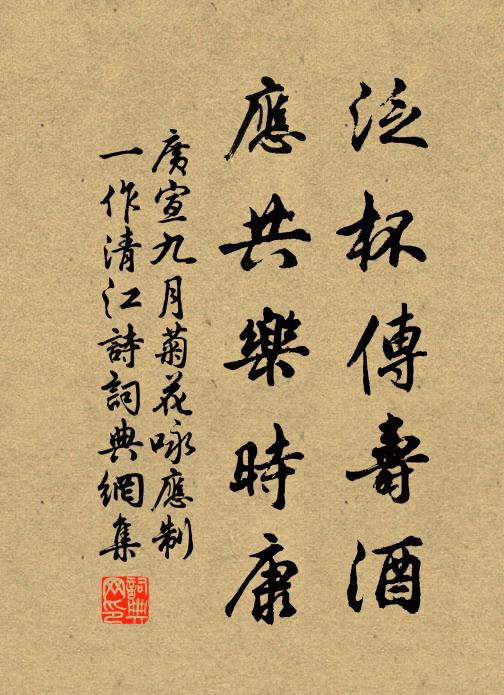 泛杯傳壽酒
應共樂時康
廣宣九月菊花咏應制
一作清江詩詞典網集
詞典网印